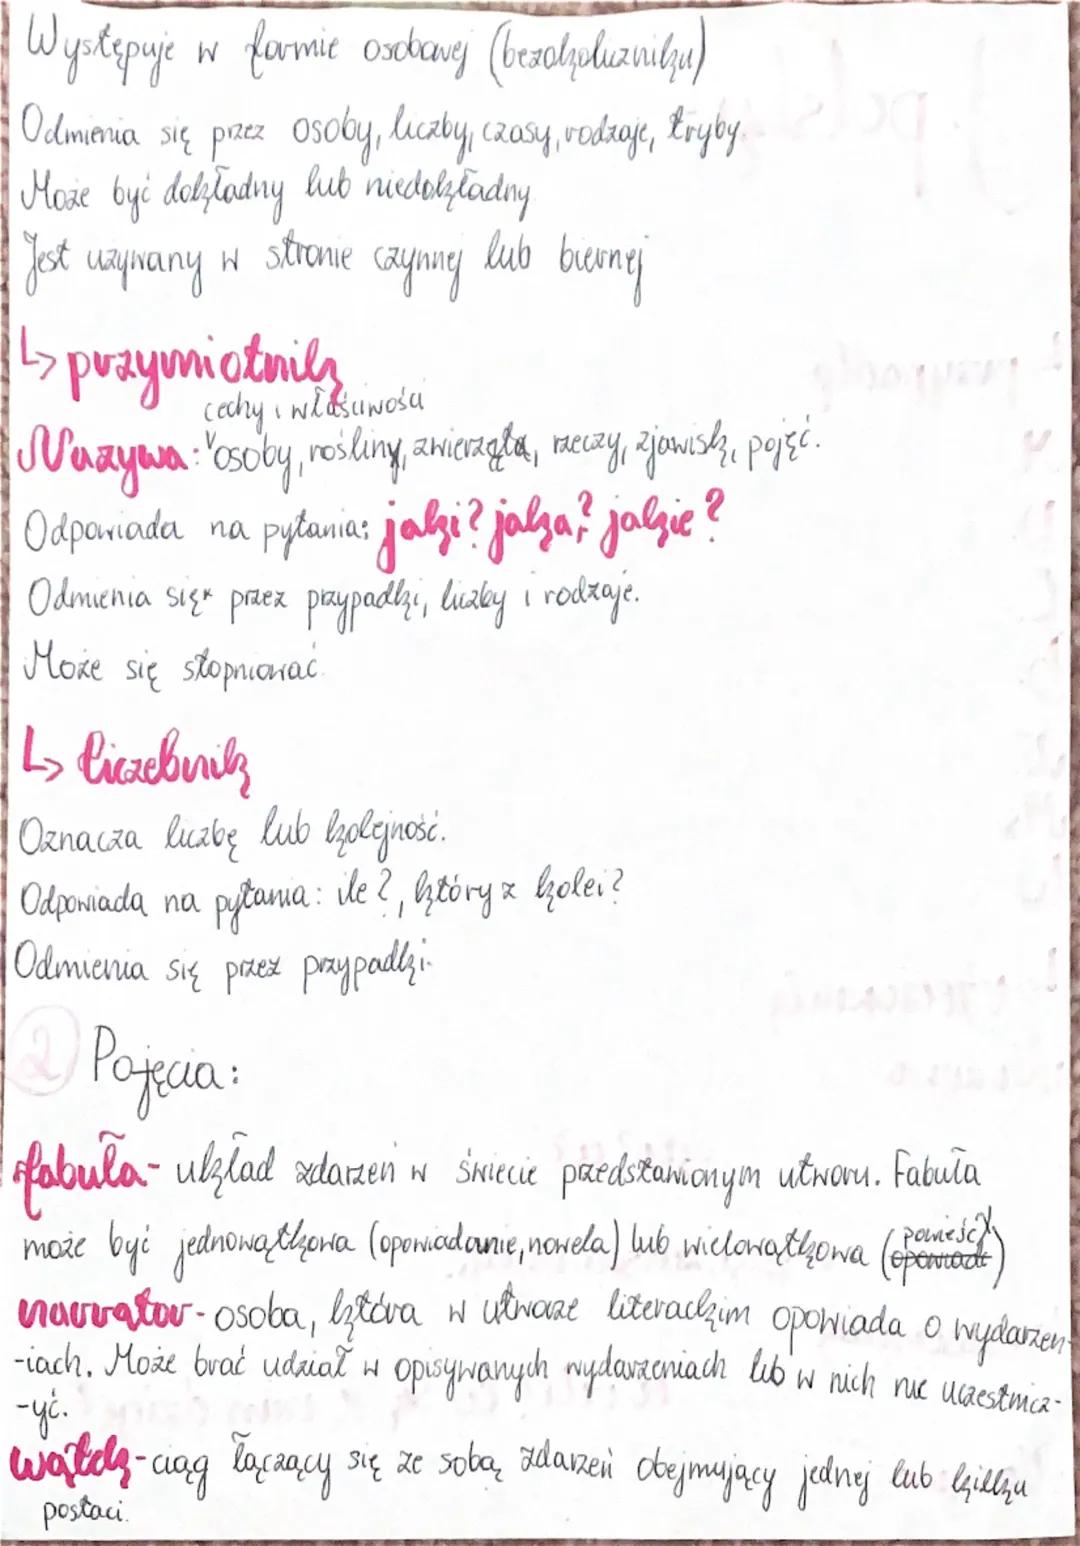 Występuje w formie osobowej (bezokoliczniku)
Odmienia się przez osoby, liczby, czasy, rodzaje, tryby.
Może być dokładny lub niedokładny
Jest używany w stronie czynnej lub biernej
↳ przymiotnik
cechy i właściwości
Nazywa: osoby, rośliny, zwierzęta, rzeczy, zjawisk, pojęć.
Odpowiada na pytania: jaki? jaka? jakie?
Odmienia się przez przypadki, liczby i rodzaje.
Może się stopniować.
↳ liczebnik
Oznacza liczbę lub kolejność.
Odpowiada na pytania: ile?, który z kolei?
Odmienia się przez przypadki.
2 Pojęcia:
fabuła - układ zdarzeń w świecie przedstawionym utworu. Fabuła
może być jednowątkowa (opowiadanie, nowela) lub wielowątkowa (powieść)
narrator - osoba, która w utworze literackim opowiada o wydarzen-
-iach. Może brać udział w opisywanych wydarzeniach lub w nich nie uczestnicz-
-yć.
wątek - ciąg łączący się ze sobą zdarzeń obejmujący jednej lub kilku
postaci.